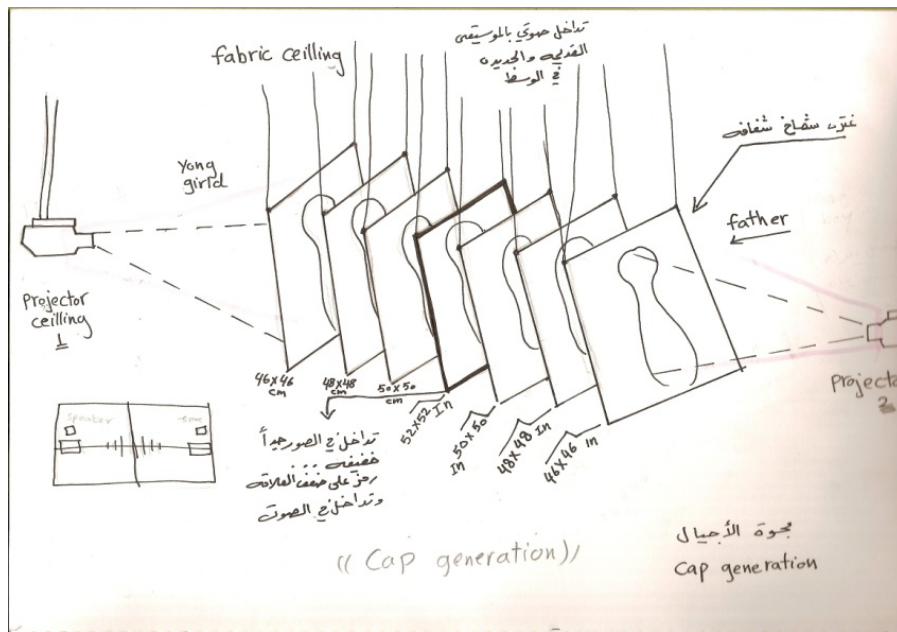 fabric ceilling
تداخل صوتي بالموسيقى
القديمه والجديده
في الوسط
Yong
girld
شفافه
father
projector
ceilling
1
projecto
2
46x46
cm
48x48
cm
50x50
cm
52x52 In
50x50
In
48x48 In
46x46 In
speaker
تداخل في الصور جيداً
خفيفه ..
رمز على ضعف العلاقه
وتداخل في الصوت
(( Cap generation ))
فجوة الأجيال
Cap generation